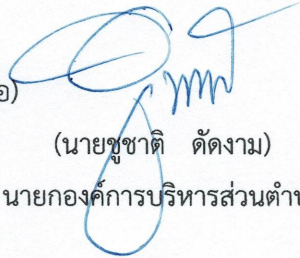 อ)
(นายชูชาติ ดัดงาม)
นายกองค์การบริหารส่วนตำบ